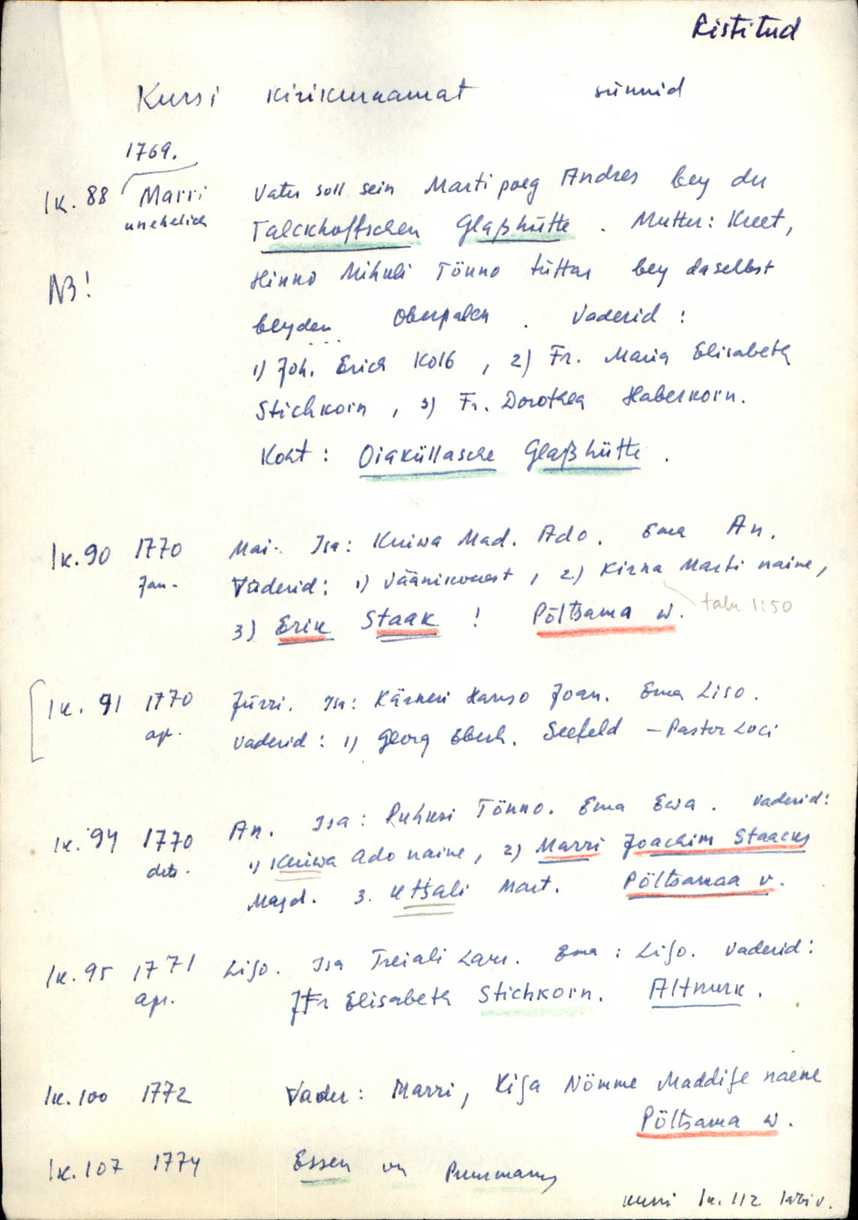 Ristitud
Kursi kirikuraamat sünnid
1769.
lk. 88 Marri Vater soll sein Marti poeg Andres bey der
unehelich Talckhoffschen Glaßhütte. Mutter: Kreet,
NB! Hinno Mihkli Tönno tüttar bey daselbst
beyden Oberpalen. Vaderid:
1) Joh. Erich Kolb, 2) Fr. Maria Elisabeth
Stichkorn, 3) Fr. Dorothea Haberkorn.
Koht: Oiaküllasche Glaßhütte.
lk. 90 1770 Mai. Isa: Kuiwa Mad. Ado. Ema An.
Jan. Vaderid: 1) 2) Kirna Marti naine,
3) Erik Staak! Põltsama w. 1:50
lk. 91 1770 Jürri. Isa: Kärneri Joan. Ema Liso.
apr. Vaderid: 1) Georg Eberh. Seefeld – Pastor Loci
lk. 94 1770 An. Isa: Tönno. Ema Ewa. Vaderid:
dets. 1) Kuiwa Ado naine, 2) Marri Joachim Staacks
Magd. 3. Mart. Põltsamaa v.
lk. 95 1771 Liso. Isa Treiali Lars. Ema: Liso. Vaderid:
apr. Jfr Elisabeth Stichkorn. Altnurk.
lk. 100 1772 Vader: Marri, Kisa Nömme Maddise naene
Põltsama w.
lk. 107 1774 Essen
kuni lk. 112 läbi v.